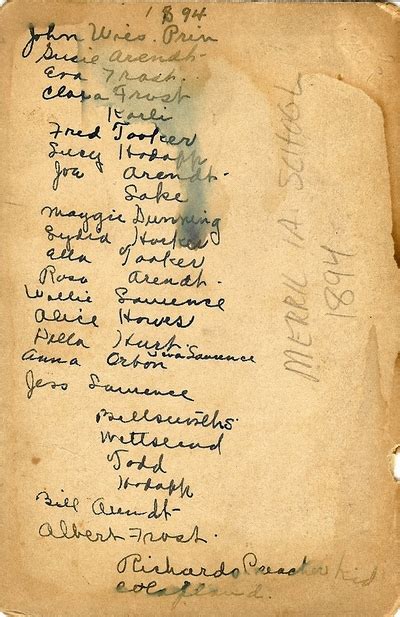 1894
John Wies. Prin
Susie Arendt
Eva Frost.
Clara Frost
Karli
Fred Tooker
Lucy Hodapp
Joe Arendt
Lake
Maggie Dunning
Lydia Hosker
Ella Tooker
Rosa Arendt
Wallie Lawrence
Alice Howes
Della Hurt Jeva Lawrence
Anna Orbon
Jess Lawrence
Wettstend
Todd
Hodapp
Bill Arendt
Albert Frost.
Richards Preacher kid
MERRIL IA SCHOOL
1894